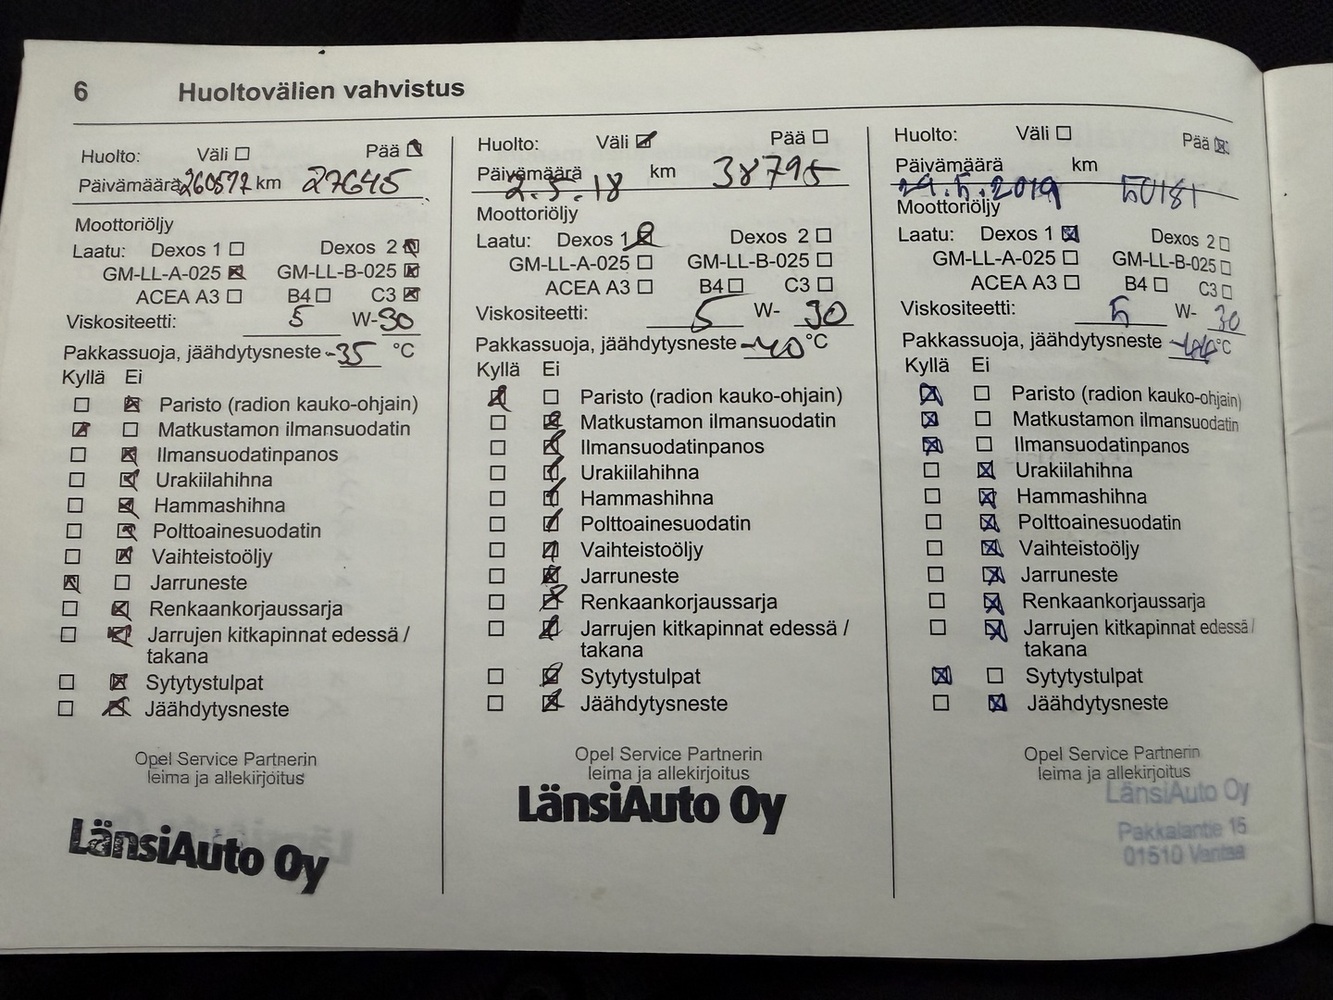 6 Huoltovälien vahvistus
Huolto: Väli ☐ Pää ☒
Päivämäärä km 27645
Moottoriöljy
Laatu: Dexos 1 ☐ Dexos 2 ☒
GM-LL-A-025 ☒ GM-LL-B-025 ☒
ACEA A3 ☐ B4 ☐ C3 ☒
Viskositeetti: 5 W-30
Pakkassuoja, jäähdytysneste -35 °C
Kyllä Ei
☐ ☒ Paristo (radion kauko-ohjain)
☒ ☐ Matkustamon ilmansuodatin
☐ ☒ Ilmansuodatinpanos
☐ ☒ Urakiilahihna
☐ ☒ Hammashihna
☐ ☒ Polttoainesuodatin
☐ ☒ Vaihteistoöljy
☒ ☐ Jarruneste
☐ ☒ Renkaankorjaussarja
☐ ☒ Jarrujen kitkapinnat edessä /
takana
☐ ☒ Sytytystulpat
☐ ☒ Jäähdytysneste
Opel Service Partnerin
leima ja allekirjoitus
LänsiAuto Oy
Huolto: Väli ☒ Pää ☐
Päivämäärä 2.5.18 km 38795
Moottoriöljy
Laatu: Dexos 1 ☒ Dexos 2 ☐
GM-LL-A-025 ☐ GM-LL-B-025 ☐
ACEA A3 ☐ B4 ☐ C3 ☐
Viskositeetti: 5 W- 30
Pakkassuoja, jäähdytysneste -40 °C
Kyllä Ei
☒ ☐ Paristo (radion kauko-ohjain)
☐ ☒ Matkustamon ilmansuodatin
☐ ☒ Ilmansuodatinpanos
☐ ☒ Urakiilahihna
☐ ☒ Hammashihna
☐ ☒ Polttoainesuodatin
☐ ☒ Vaihteistoöljy
☐ ☒ Jarruneste
☐ ☒ Renkaankorjaussarja
☐ ☒ Jarrujen kitkapinnat edessä /
takana
☐ ☒ Sytytystulpat
☐ ☒ Jäähdytysneste
Opel Service Partnerin
leima ja allekirjoitus
LänsiAuto Oy
Huolto: Väli ☐ Pää ☒
Päivämäärä km
50181
Moottoriöljy
Laatu: Dexos 1 ☒ Dexos 2 ☐
GM-LL-A-025 ☐ GM-LL-B-025 ☐
ACEA A3 ☐ B4 ☐ C3 ☐
Viskositeetti: 5 W- 30
Pakkassuoja, jäähdytysneste °C
Kyllä Ei
☒ ☐ Paristo (radion kauko-ohjain)
☒ ☐ Matkustamon ilmansuodatin
☒ ☐ Ilmansuodatinpanos
☐ ☒ Urakiilahihna
☐ ☒ Hammashihna
☐ ☒ Polttoainesuodatin
☐ ☒ Vaihteistoöljy
☐ ☒ Jarruneste
☐ ☒ Renkaankorjaussarja
☐ ☒ Jarrujen kitkapinnat edessä /
takana
☒ ☐ Sytytystulpat
☐ ☒ Jäähdytysneste
Opel Service Partnerin
leima ja allekirjoitus
LänsiAuto Oy
Pakkalantie 15
01510 Vantaa